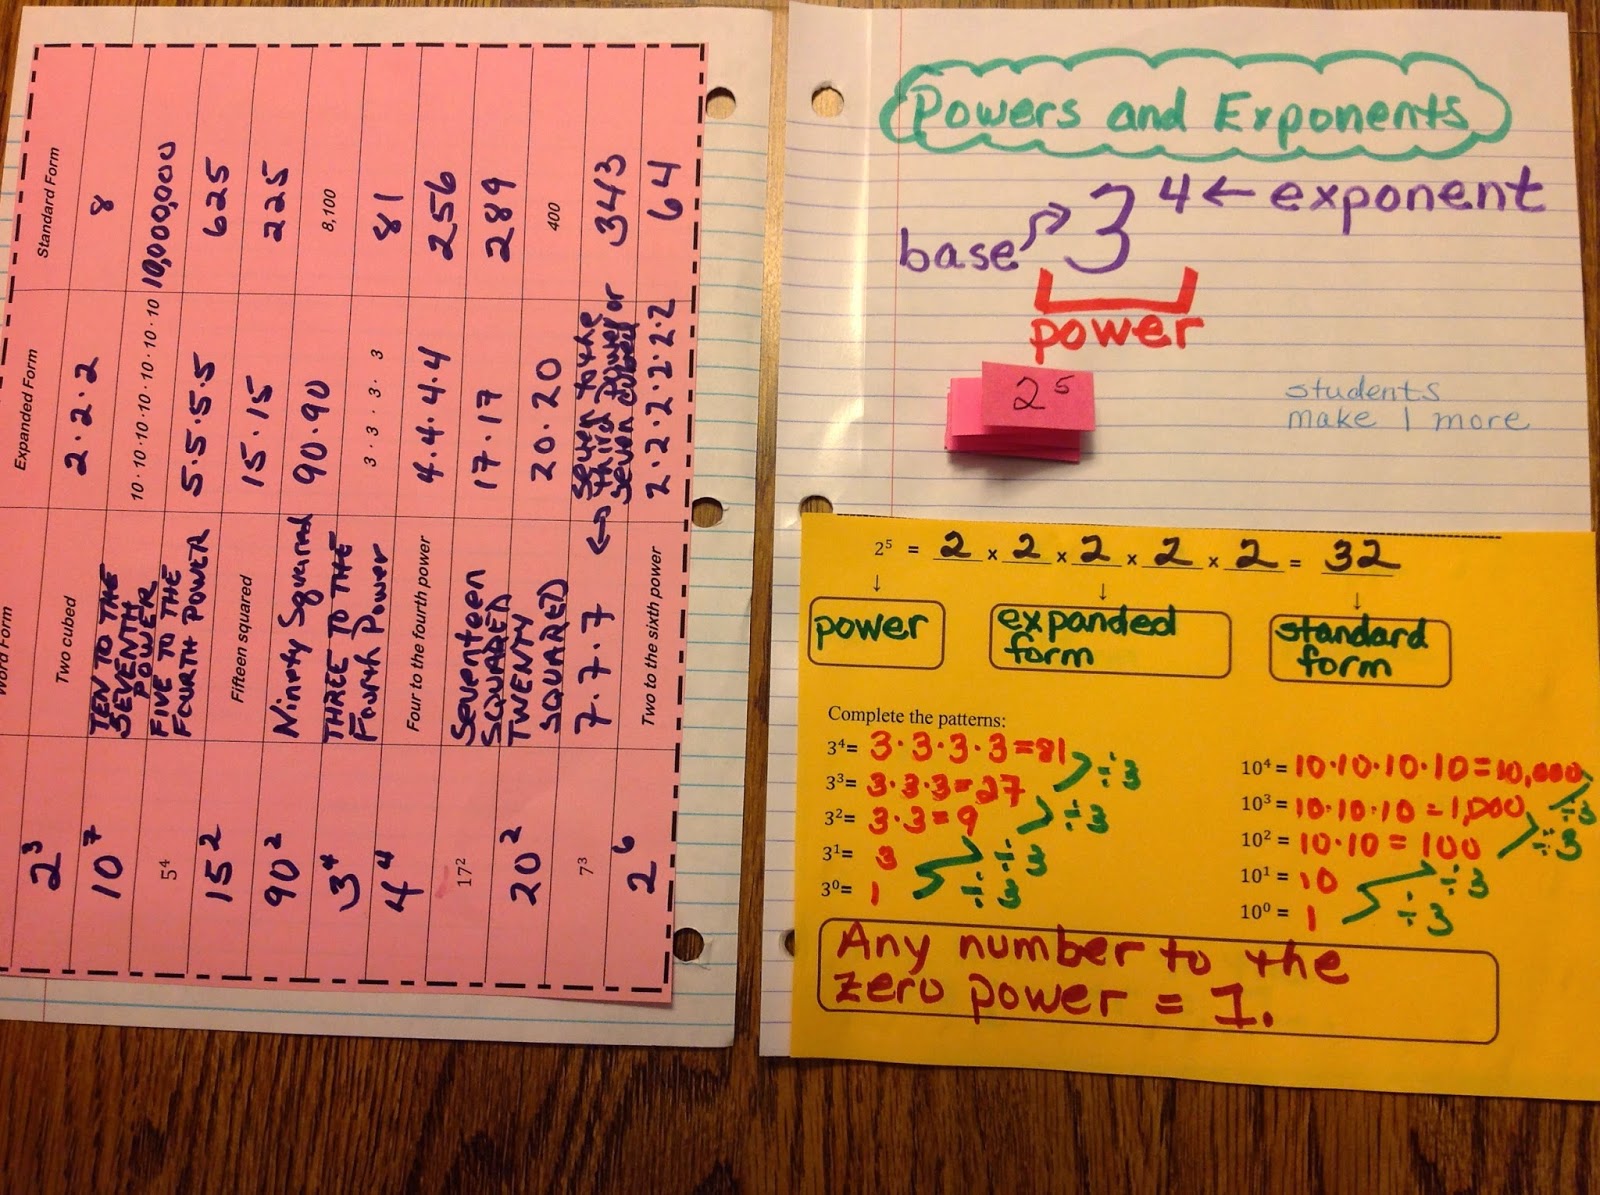 Word Form Expanded Form Standard Form
2³ Two cubed 2·2·2 8
10⁷ TEN TO THE SEVENTH POWER 10·10·10·10·10·10·10 10,000,000
5⁴ FIVE TO THE FOURTH POWER 5·5·5·5 625
15² Fifteen squared 15·15 225
90² Ninety Squared 90·90 8,100
3⁴ THREE TO THE Fourth Power 3·3·3·3 81
4⁴ Four to the fourth power 4·4·4·4 256
17² Seventeen SQUARED 17·17 289
20² TWENTY SQUARED 20·20 400
7³ 7·7·7 ↔ seven to the third power or seven cubed 343
2⁶ Two to the sixth power 2·2·2·2·2·2 64
Powers and Exponents
3⁴ ← exponent
base
power
2⁵
students
make 1 more
2⁵ = 2 × 2 × 2 × 2 × 2 = 32
↓ ↓ ↓
power expanded form standard form
Complete the patterns:
3⁴= 3·3·3·3=81 ÷3
3³= 3·3·3=27 ÷3
3²= 3·3=9 ÷3
3¹= 3 ÷3
3⁰= 1
10⁴ = 10·10·10·10=10,000 ÷3
10³ = 10·10·10=1,000 ÷3
10² = 10·10=100 ÷3
10¹ = 10 ÷3
10⁰ = 1
Any number to the
zero power = 1.